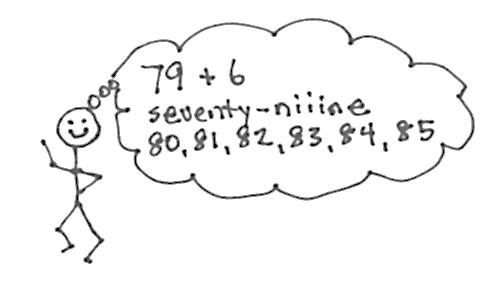 79 + 6
seventy-niiine
80, 81, 82, 83, 84, 85